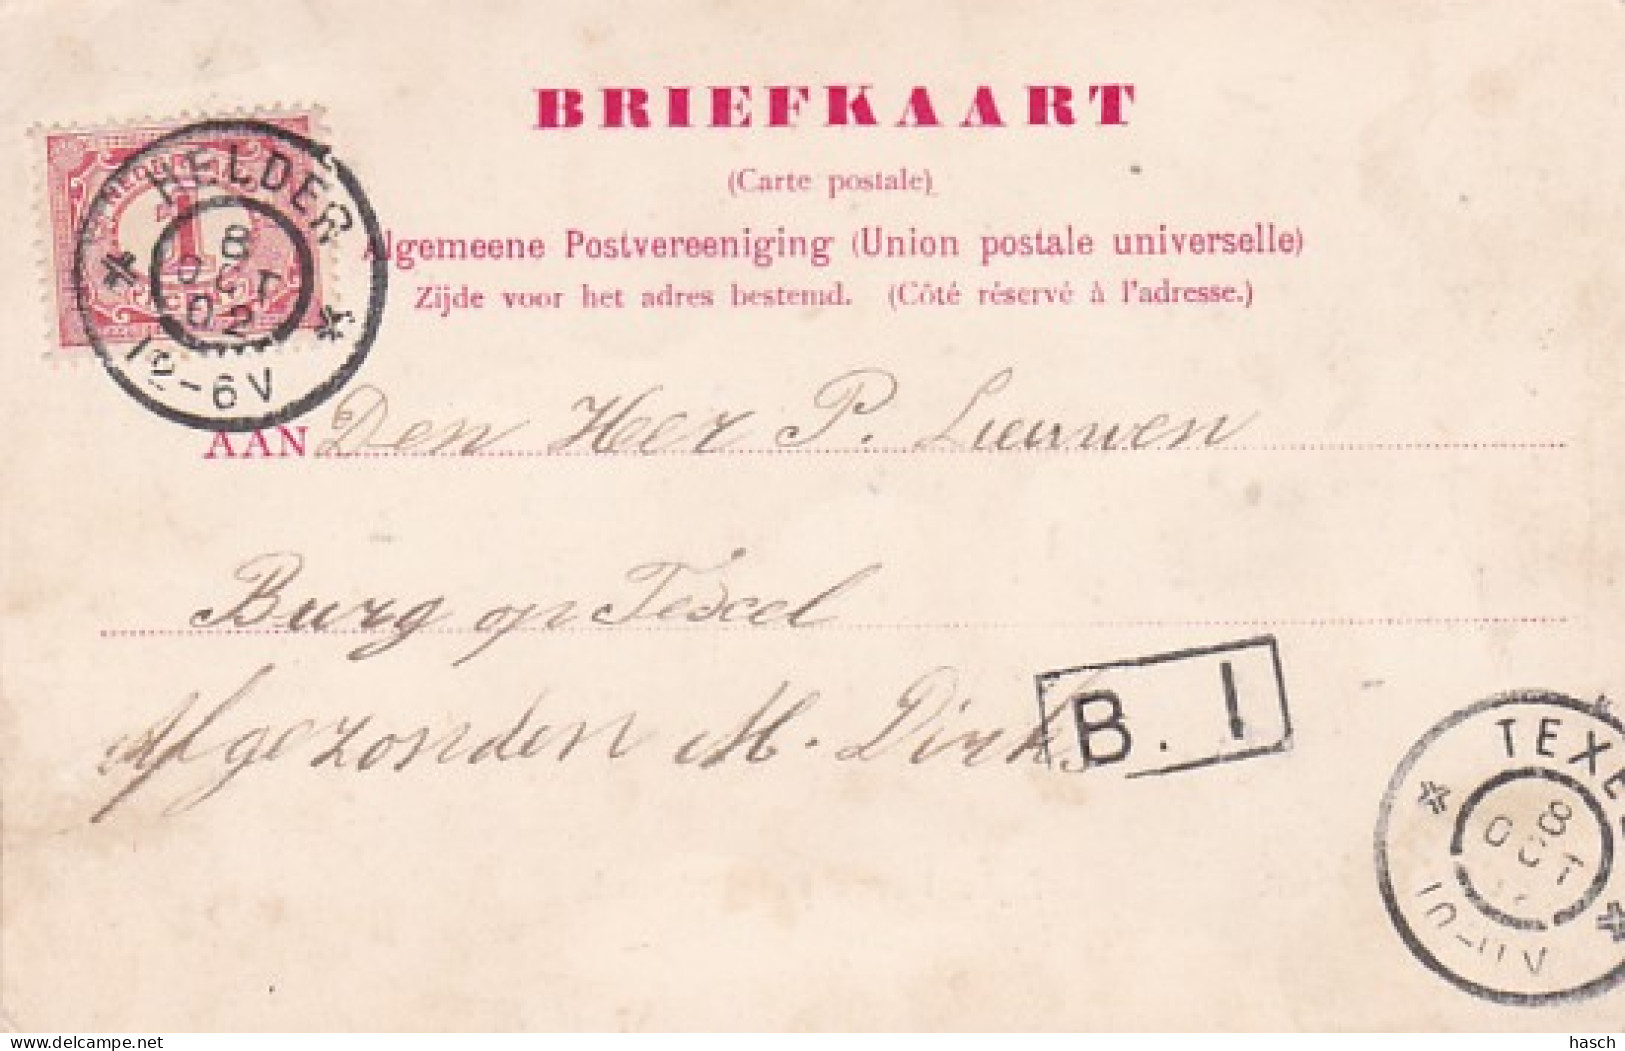 BRIEFKAART
(Carte postale)
Algemeene Postvereeniging (Union postale universelle)
Zijde voor het adres bestemd. (Côté réservé à l'adresse.)
1
HELDER
8
OCT
02
12-6V
AAN Den Heer P. Lieuwen
Burg op Texel
Afgezonden M. Dirks
B. 1
TEXEL
8
OCT
10-11V
hasch